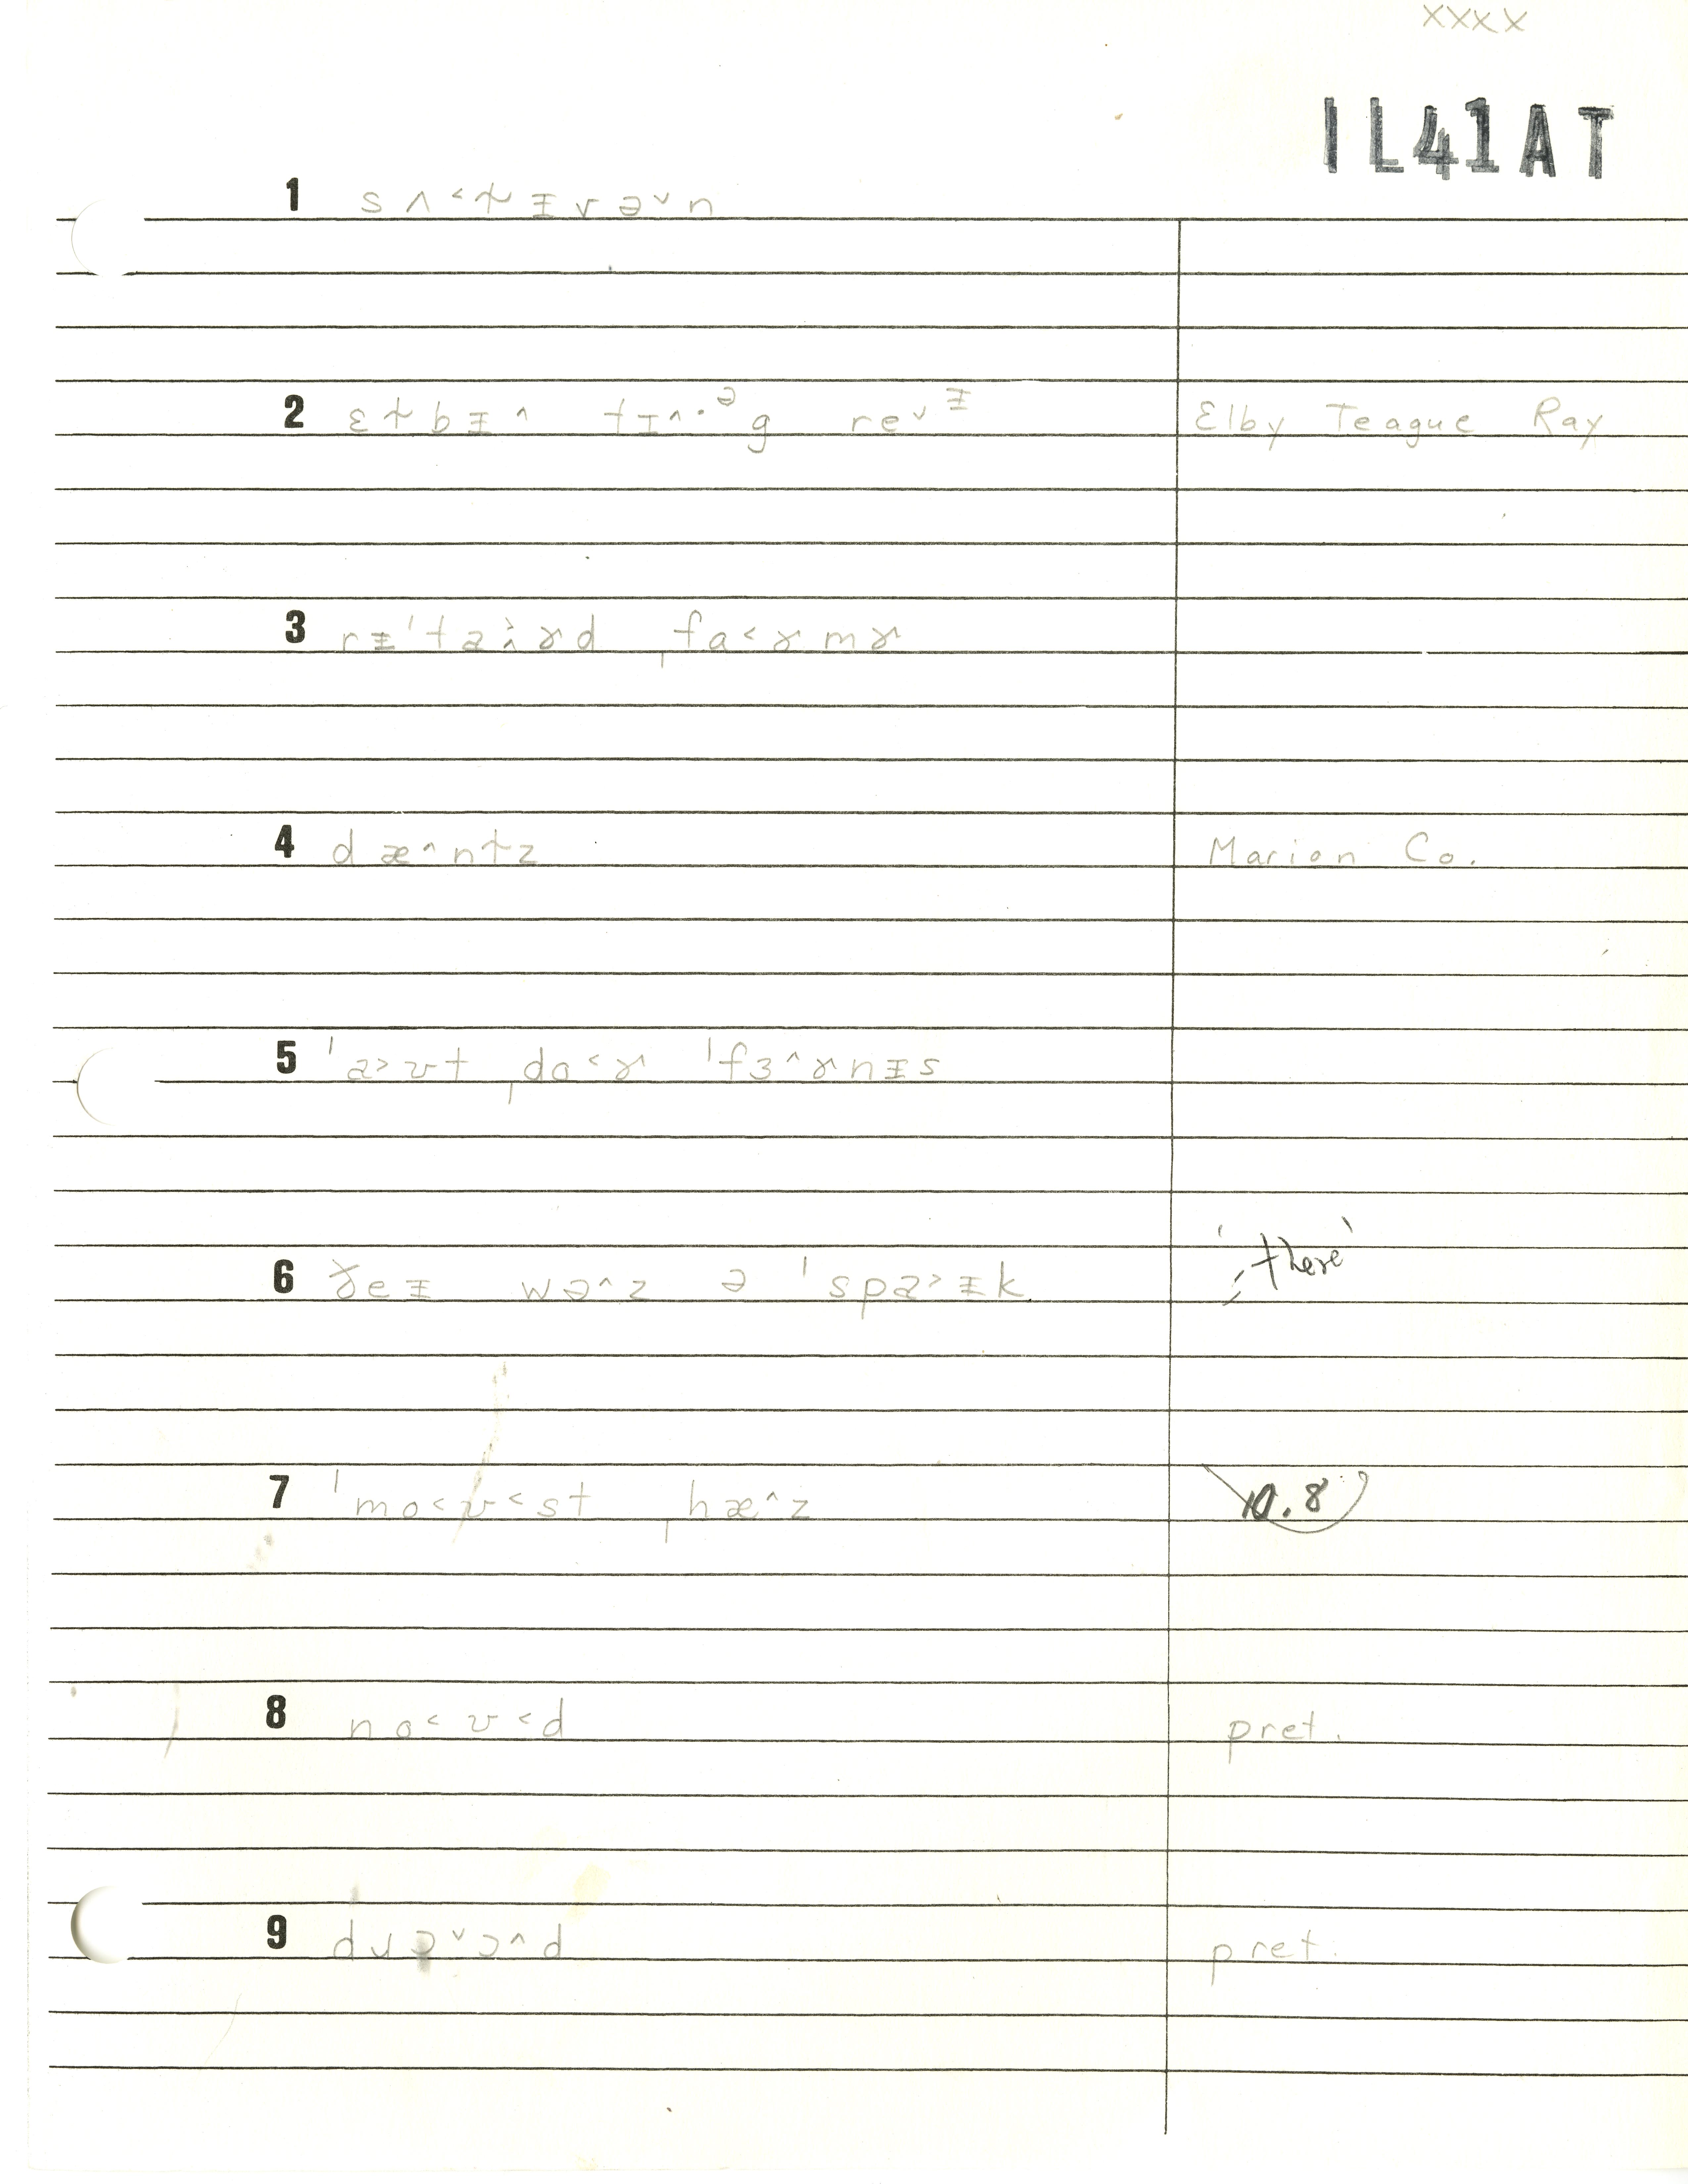 xxxx
IL41AT
1 sʌ˂ɫᵻvə˅n
2 ɛɫbᵻ˄ tᵻ˄·ᵊg re˅ᵻ Elby Teague Ray
3 rᵻˈta˃˄ɚd ˌfɑ˂ɚmɚ
4 dæ˄nɫz Marion Co.
5 ˈa˃ʊt ˌdo˂ɚ ˈfɜ˄ɚnᵻs
6 ðeᵻ wə˄z ə ˈspa˃ᵻk ; 'there'
7 ˈmo˂ʊ˂st ˌhæ˄z 10.8
8 no˂ʊ˂d pret.
9 pret.